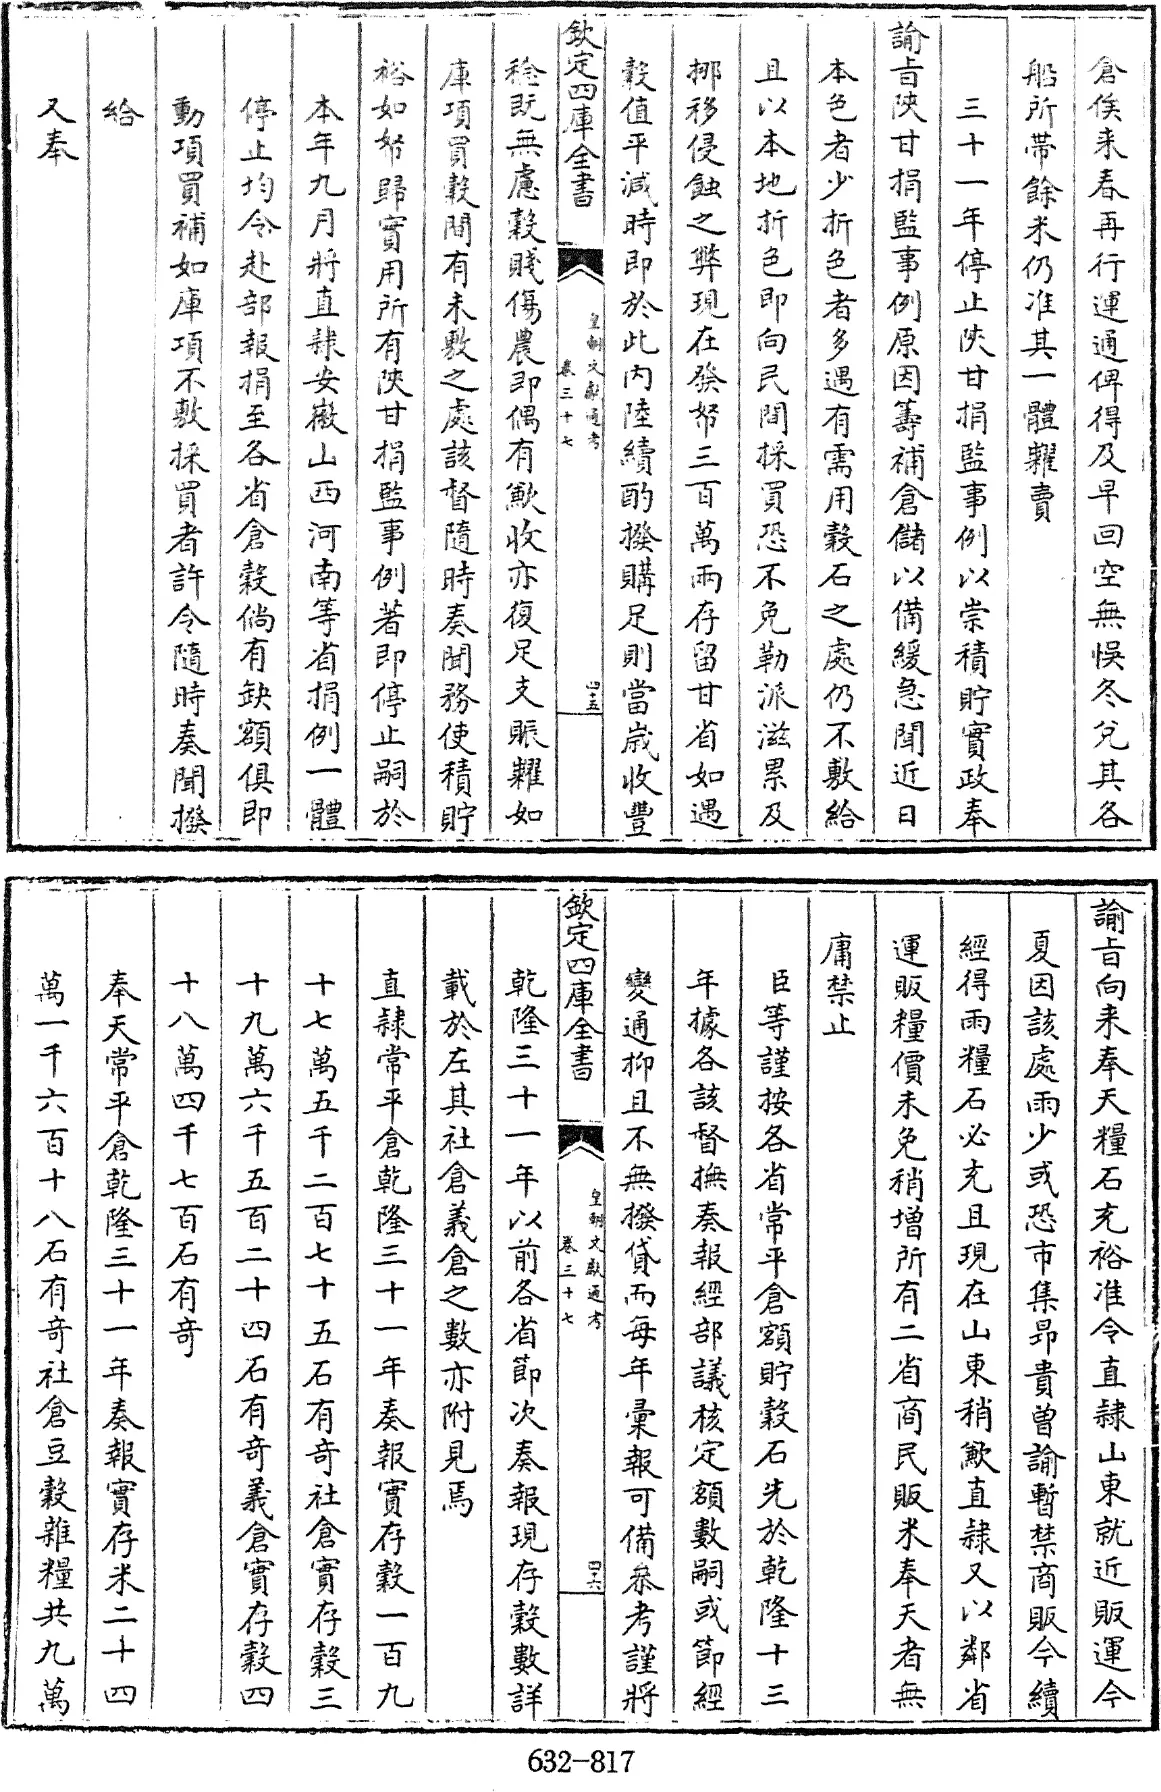 倉俟来春再行運通俾得及早回空無悞冬兊其各
船所帶餘米仍准其一體糶賣
三十一年停止陜甘捐監事例以崇積貯實政奉
諭旨陜甘捐監事例原因籌補倉儲以備緩急聞近日
本色者少折色者多遇有需用穀石之處仍不敷給
且以本地折色即向民間採買恐不免勒派滋累及
挪移侵蝕之弊現在發帑三百萬兩存留甘省如遇
穀值平減時即於此内陸續酌撥購足則當歲收豐
欽定四庫全書
皇朝文獻通考
卷三十七
四十五
稔既無慮穀賤傷農即偶有歉收亦復足支賑糶如
庫項買穀間有未敷之處該督隨時奏聞務使積貯
裕如帑歸實用所有陜甘捐監事例著即停止嗣於
本年九月將直隸安徽山西河南等省捐例一體
停止均令赴部報捐至各省倉穀倘有缺額俱即
動項買補如庫項不敷採買者許令隨時奏聞撥
給
又奉
諭旨向来奉天糧石充裕准令直隸山東就近販運今
夏因該處雨少或恐市集昻貴曾諭暫禁商販今續
經得雨糧石必充且現在山東稍歉直隸又以鄰省
運販糧價未免稍增所有二省商民販米奉天者無
庸禁止
臣等謹按各省常平倉額貯穀石先於乾隆十三
年據各該督撫奏報經部議核定額數嗣或節經
變通抑且不無撥貸而每年彙報可備叅考謹將
欽定四庫全書
皇朝文獻通考
卷三十七
四十六
乾隆三十一年以前各省節次奏報現存穀數詳
載於左其社倉義倉之數亦附見焉
直隸常平倉乾隆三十一年奏報實存穀一百九
十七萬五千二百七十五石有奇社倉實存穀三
十九萬六千五百二十四石有奇義倉實存穀四
十八萬四千七百石有奇
奉天常平倉乾隆三十一年奏報實存米二十四
萬一千六百十八石有奇社倉豆穀雜糧共九萬
632-817